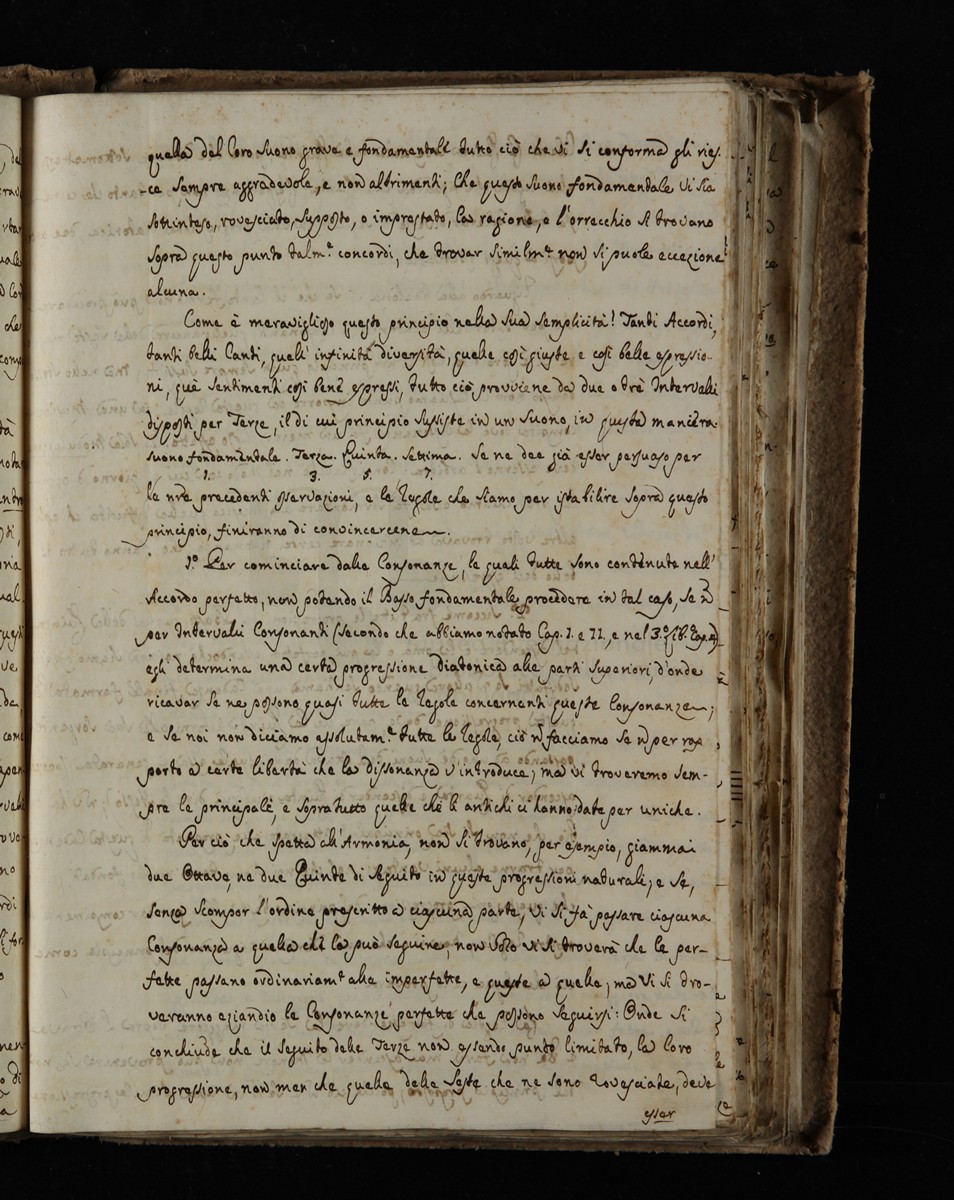 quella del loro suono grave e fondamentale tutto ciò che vi si conforma gli ries-
ce sempre aggradevole, e non altrimenti; Che questo suono fondamentale vi sia
sottinteso, rovesciato, supposto, o imprestato, la ragione, e l'orrecchio si trovano
sopra questo punto talm.e concordi, che trovar similm.e non si puole eccezione
alcuna.
Come è meraviglioso questo principio nella sua semplicità! Tanti Accordi,
tanti belli Canti, quell' infinità diversità, quelle così giuste e così belle espressio-
ni, que sentimenti così bene espressi, tutto ciò provviene da due o trè Intervalli
disposti per Terze, il di cui principio sussiste in un suono, in questa maniera.
suono fondamentale. Terza. Quinta. settima. se ne dee già esser persuaso per
1. 3. 5. 7.
le nre precedenti osservazioni, e le Regole che siamo per istabilire sopra questo
principio, finiranno di convincercene.
1.o Per cominciare dalle Consonanze, le quali tutte sono contenute nell'
Accordo perfetto, non potendo il Basso fondamentale procedere in tal caso, se ñ
per Intervalli Consonanti (secondo che abbiamo notato Cap. I. e II, e nel 3.o
egli determina una certa progressione diatonica alle parti superiori, d'onde
ricavar se ne possono quasi tutte le Regole concernenti queste Consonanze;
e se noi non diciamo assolutam.e tutte le Regole, ciò ñ facciamo se ñ per rap
porto a certe libertà che la dissonanza v'introduce; ma vi troveremo sem-
pre le principali, e sopratutto quelle che li antichi ci hanno date per uniche.
Per ciò che spetta all'Armonia, non si trovano, per esempio, giammai
due Ottave, ne due Quinte di seguito in queste progressioni naturali; e se,
senza scompor l'ordine prescritto a ciascuna parte, vi si fà passare ciascuna
Consonanza a quella che la può seguire, non solo vi si troverà che le per-
fette passano ordinariam.e alle imperfette, e queste a quelle; ma vi si tro-
veranno eziandio le Consonanze perfette che possono seguirsi: Onde si
conchiude che il seguito delle Terze non essendo punto limitato, la loro
progressione, non men che quella delle seste che ne sono rovesciate, deve
esser